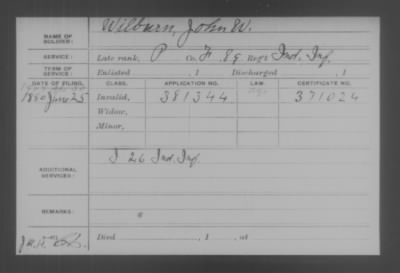 NAME OF SOLDIER: Wilburn, John W.
SERVICE: Late rank, P Co. H, 89 Reg't Ind. Inf.
TERM OF SERVICE: Enlisted , 1 Discharged , 1
DATE OF FILING. CLASS. APPLICATION NO. LAW. CERTIFICATE NO.
1880 June 25 Invalid, 381344 371024
Widow,
Minor,
ADDITIONAL SERVICES: I 26 Ind. Inf.
REMARKS:
Died , 1 , at